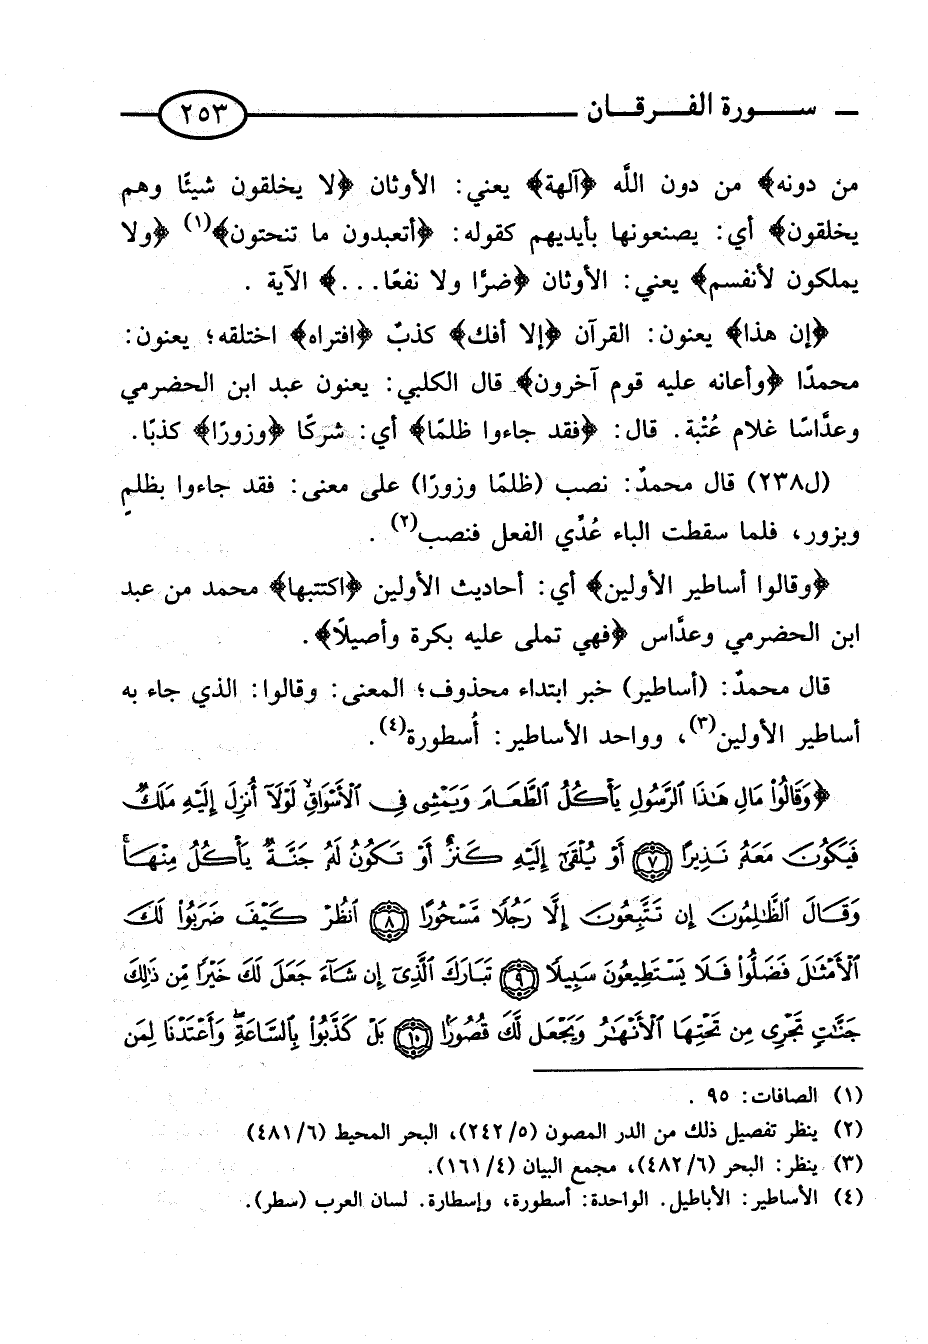 سورة الفرقان ٢٥٣
من دونه﴾ من دون اللَّه ﴿آلهة﴾ يعني: الأوثان ﴿لا يخلقون شيئًا وهم
يخلقون﴾ أي: يصنعونها بأيديهم كقوله: ﴿أتعبدون ما تنحتون﴾(١) ﴿ولا
يملكون لأنفسم﴾ يعني: الأوثان ﴿ضرًّا ولا نفعًا...﴾ الآية .
﴿إن هذا﴾ يعنون: القرآن ﴿إلا أفك﴾ كذبٌ ﴿افتراه﴾ اختلقه؛ يعنون:
محمدًا ﴿وأعانه عليه قوم آخرون﴾ قال الكلبي: يعنون عبد ابن الحضرمي
وعدَّاسًا غلام عُتْبة. قال: ﴿فقد جاءوا ظلمًا﴾ أي: شركًا ﴿وزورًا﴾ كذبًا.
(ل٢٣٨) قال محمدٌ: نصب (ظلمًا وزورًا) على معنى: فقد جاءوا بظلمٍ
وبزور، فلما سقطت الباء عُدِّي الفعل فنصب(٢) .
﴿وقالوا أساطير الأولين﴾ أي: أحاديث الأولين ﴿اكتتبها﴾ محمد من عبد
ابن الحضرمي وعدَّاس ﴿فهي تملى عليه بكرة وأصيلًا﴾.
قال محمدٌ: (أساطير) خبر ابتداء محذوف؛ المعنى: وقالوا: الذي جاء به
أساطير الأولين(٣)، وواحد الأساطير: أُسطورة(٤).
﴿وَقَالُواْ مَالِ هَٰذَا ٱلرَّسُولِ يَأۡكُلُ ٱلطَّعَامَ وَيَمۡشِي فِي ٱلۡأَسۡوَاقِۙ لَوۡلَآ أُنزِلَ إِلَيۡهِ مَلَكٌ
فَيَكُونَ مَعَهُۥ نَذِيرًا ٧ أَوۡ يُلۡقَىٰٓ إِلَيۡهِ كَنزٌ أَوۡ تَكُونُ لَهُۥ جَنَّةٌ يَأۡكُلُ مِنۡهَاۚ
وَقَالَ ٱلظَّٰلِمُونَ إِن تَتَّبِعُونَ إِلَّا رَجُلًا مَّسۡحُورًا ٨ ٱنظُرۡ كَيۡفَ ضَرَبُواْ لَكَ
ٱلۡأَمۡثَٰلَ فَضَلُّواْ فَلَا يَسۡتَطِيعُونَ سَبِيلًا ٩ تَبَارَكَ ٱلَّذِيٓ إِن شَآءَ جَعَلَ لَكَ خَيۡرًا مِّن ذَٰلِكَ
جَنَّٰتٍ تَجۡرِي مِن تَحۡتِهَا ٱلۡأَنۡهَٰرُ وَيَجۡعَل لَّكَ قُصُورَۢا ١٠ بَلۡ كَذَّبُواْ بِٱلسَّاعَةِۖ وَأَعۡتَدۡنَا لِمَن
(١) الصافات: ٩٥ .
(٢) ينظر تفصيل ذلك من الدر المصون (٢٤٢/٥)، البحر المحيط (٤٨١/٦)
(٣) ينظر: البحر (٤٨٢/٦)، مجمع البيان (١٦١/٤).
(٤) الأساطير: الأباطيل. الواحدة: أسطورة، وإسطارة. لسان العرب (سطر).